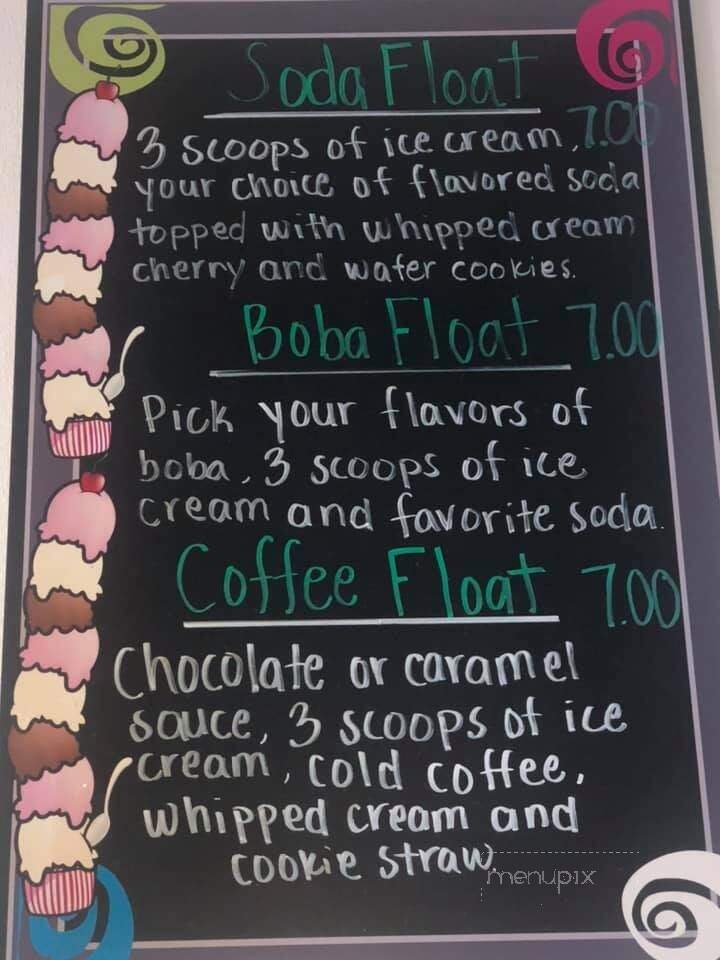 Soda Float
3 scoops of ice cream, 7.00
your choice of flavored soda
topped with whipped cream
cherry and wafer cookies.
Boba Float 7.00
Pick your flavors of
boba, 3 scoops of ice
cream and favorite soda.
Coffee Float 7.00
Chocolate or caramel
sauce, 3 scoops of ice
cream, cold coffee,
whipped cream and
cookie straw
menupix